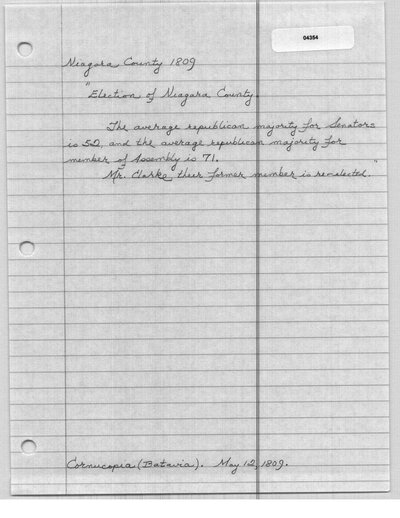 04354
Niagara County 1809
"Election of Niagara County.
The average republican majority for Senators
is 52, and the average republican majority for
member of Assembly is 71.
Mr. Clarke, their former member is re-elected."
Cornucopia (Batavia). May 12, 1809.